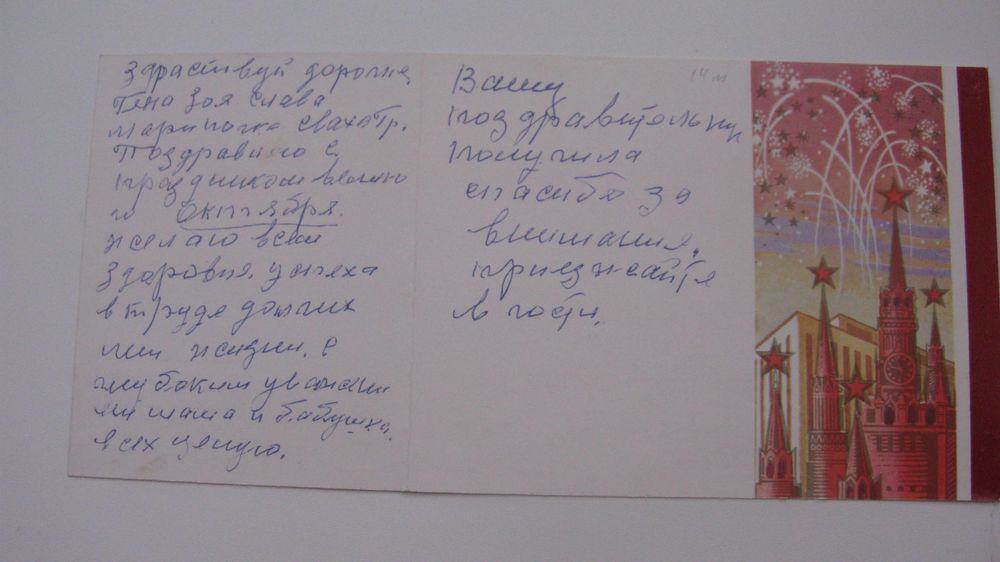 Здраствуй дорогие
Гена Зоя Слава
Мариночка
Поздравляю с
праздником велико
го Октября.
желаю всем
здоровия, успеха
в труде долгих
лет жизни. с
глубоким уважени
ем мама и бабушка.
всех целую.
Вашу
поздравительную
получила
спасибо за
внимания.
приезжайте
в гости.